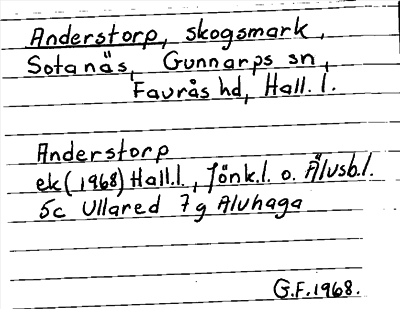 Anderstorp, skogsmark,
Sotanäs, Gunnarps sn,
Faurås hd, Hall. l.
Anderstorp
ek (1968) Hall.l., Jönk.l. o. Älvsb.l.
5c Ullared 7g Alvhaga
G.F. 1968.